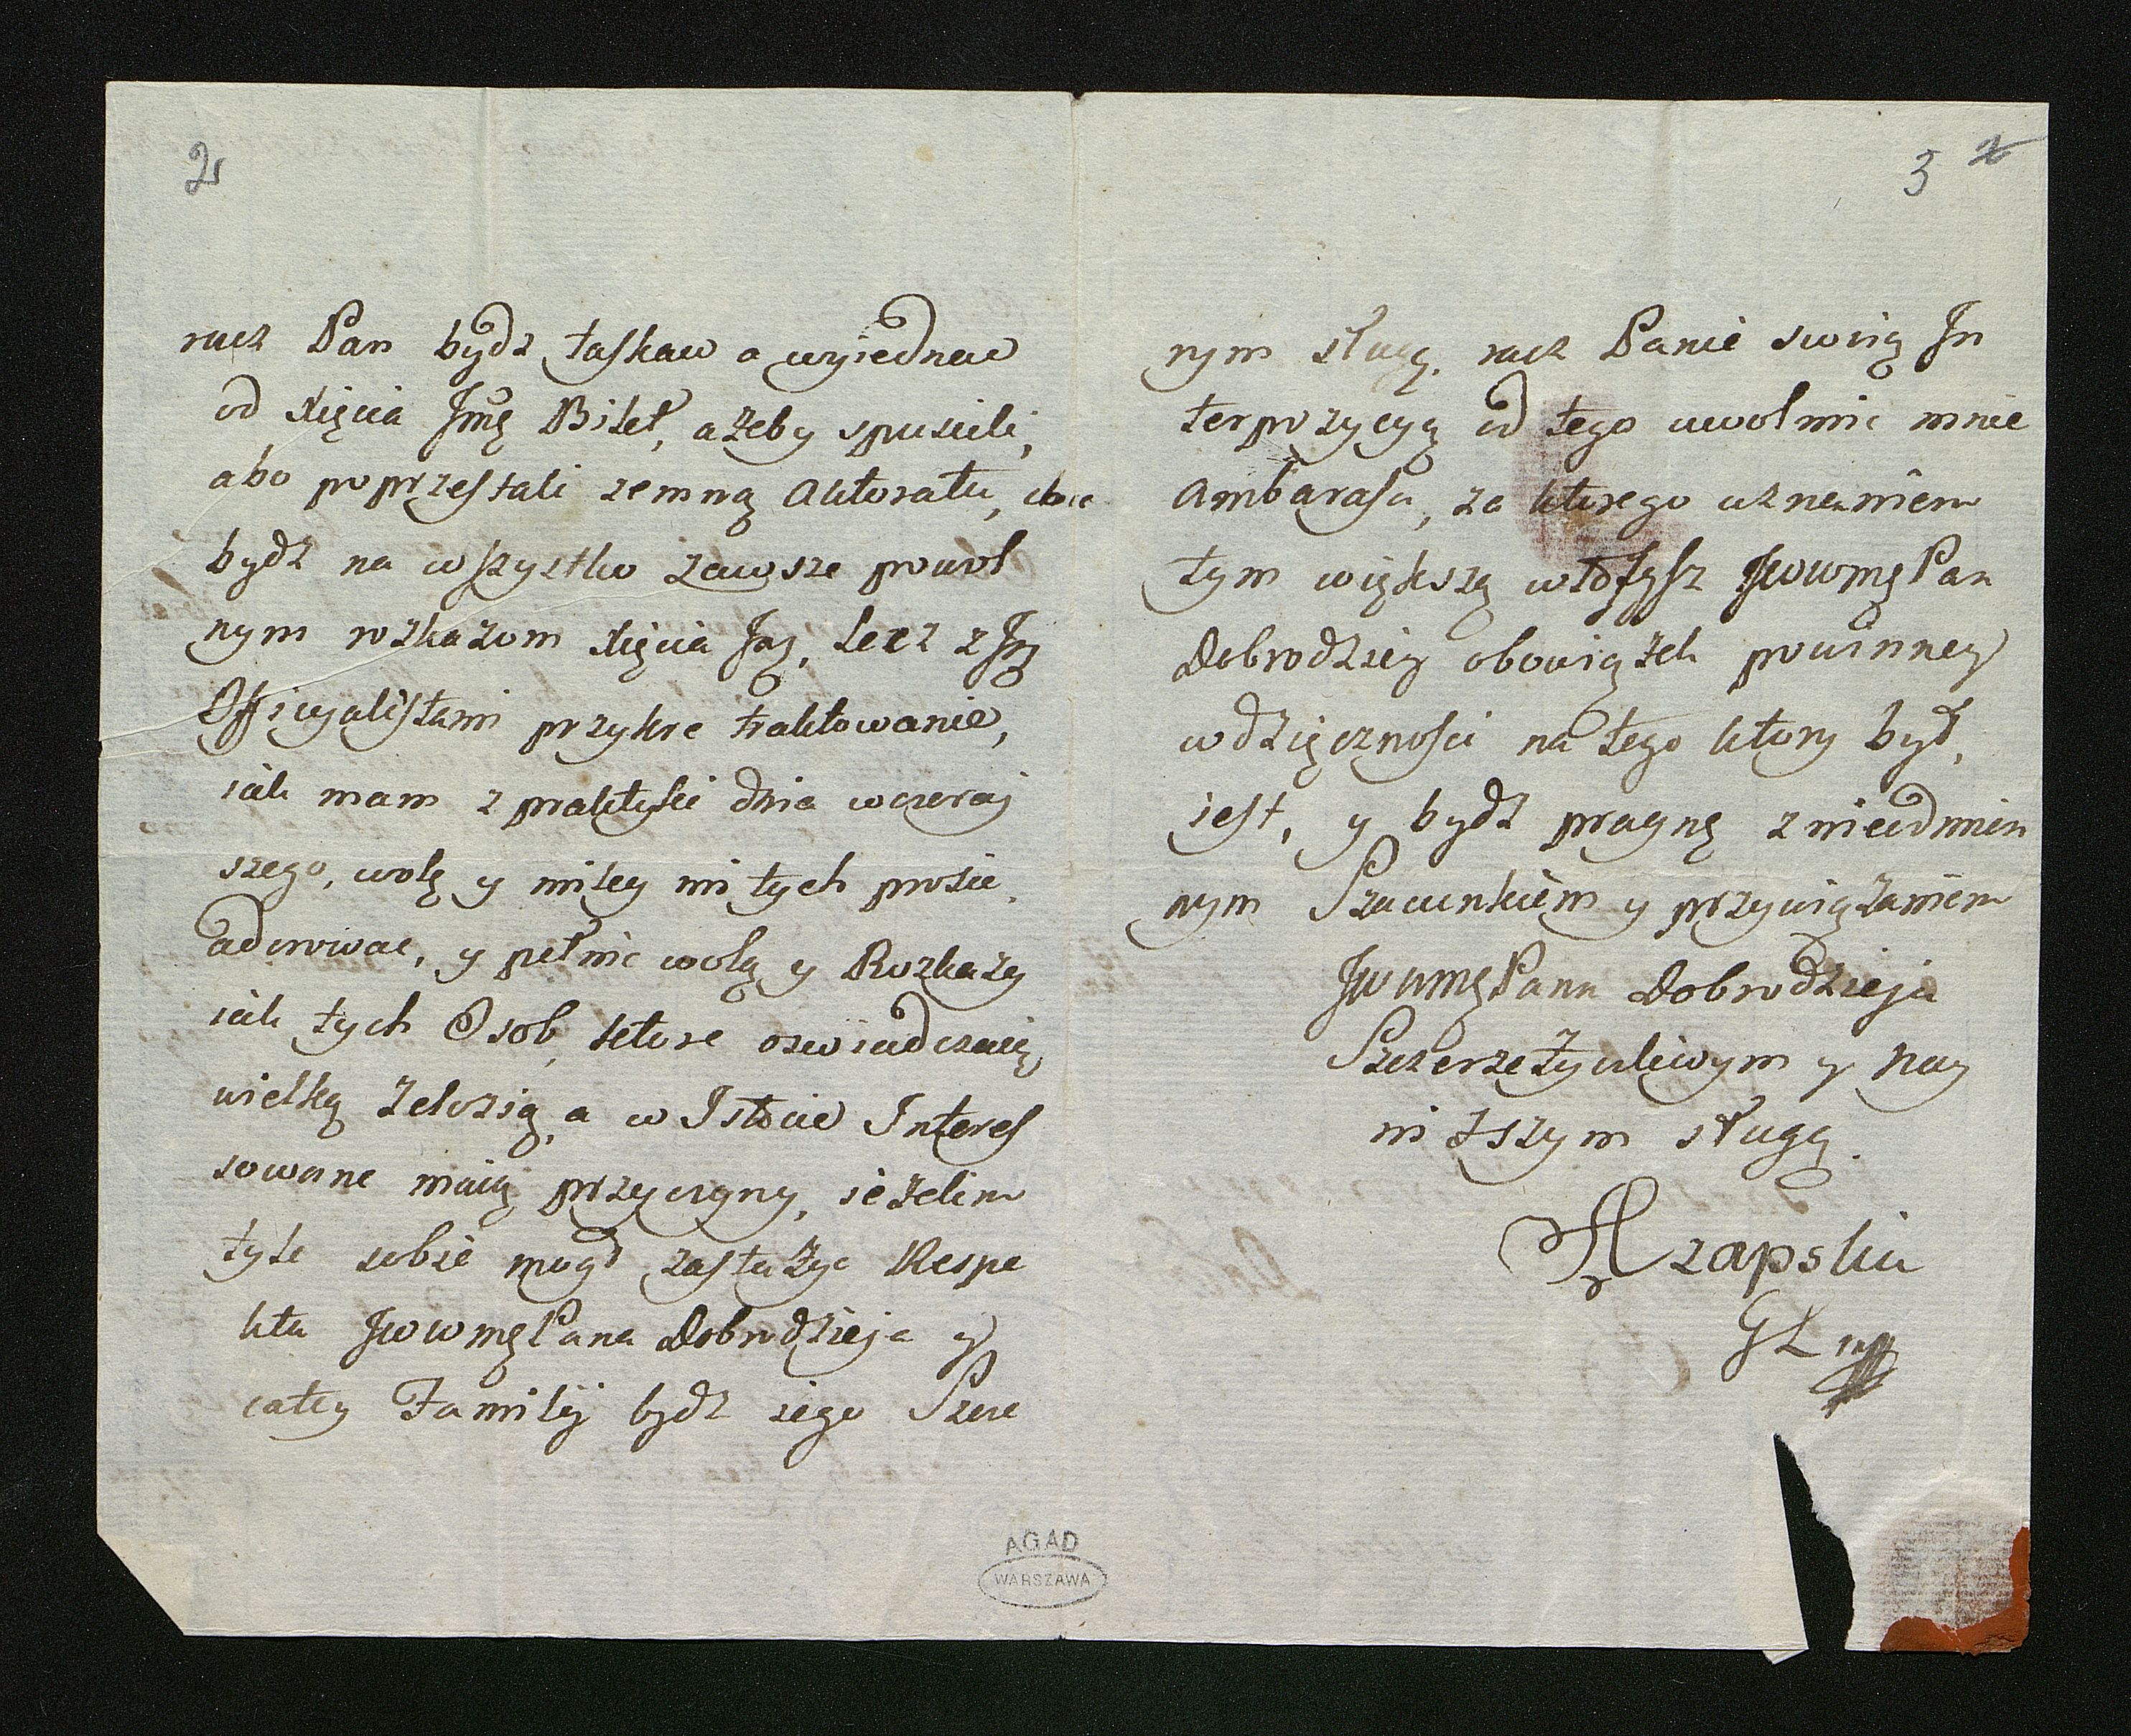 2
racz Pan bydz łaskaw a wyiednac
od Xięcia Jmę Bilet, ażeby spuscili,
abo poprzestali zemną Aktoratu, chce
bydz na wszystko zawsze powol
nym rozkazom Xięcia Jmę, lecz z Jmę
Officyalistami przykre traktowanie,
iak mam z praktyki dnia wczoray
szego, wolę y miley mi tych prosic,
adorowac, y pełnic wolą y Rozkazy
iak tych Osob, ktore oswiadczaią
wielką zelozią, a w Istocie Interes
sowane maią przyczyny, ieżelim
tyle sobie mogł zasłużyc Respe
ktu JwwmęPana Dobrodzieja y
całey Familij bydz iego Szcze
3 2
rym sługą, racz Panie swoią In
terpozycyą od tego uwolnic mnie
Ambarasu, za ktorego uznaniem
tym większą włożysz JwwmęPan
Dobrodziey obowiązek powinney
wdzięcznosci na tego ktory był,
iest, y bydz pragnę z nieodmien
nym Szacunkiem y przywiązaniem
JwwmęPana Dobrodzieja
Szczerze życzliwym y nay
niższym sługą.
Czapski
GL
AGAD
WARSZAWA